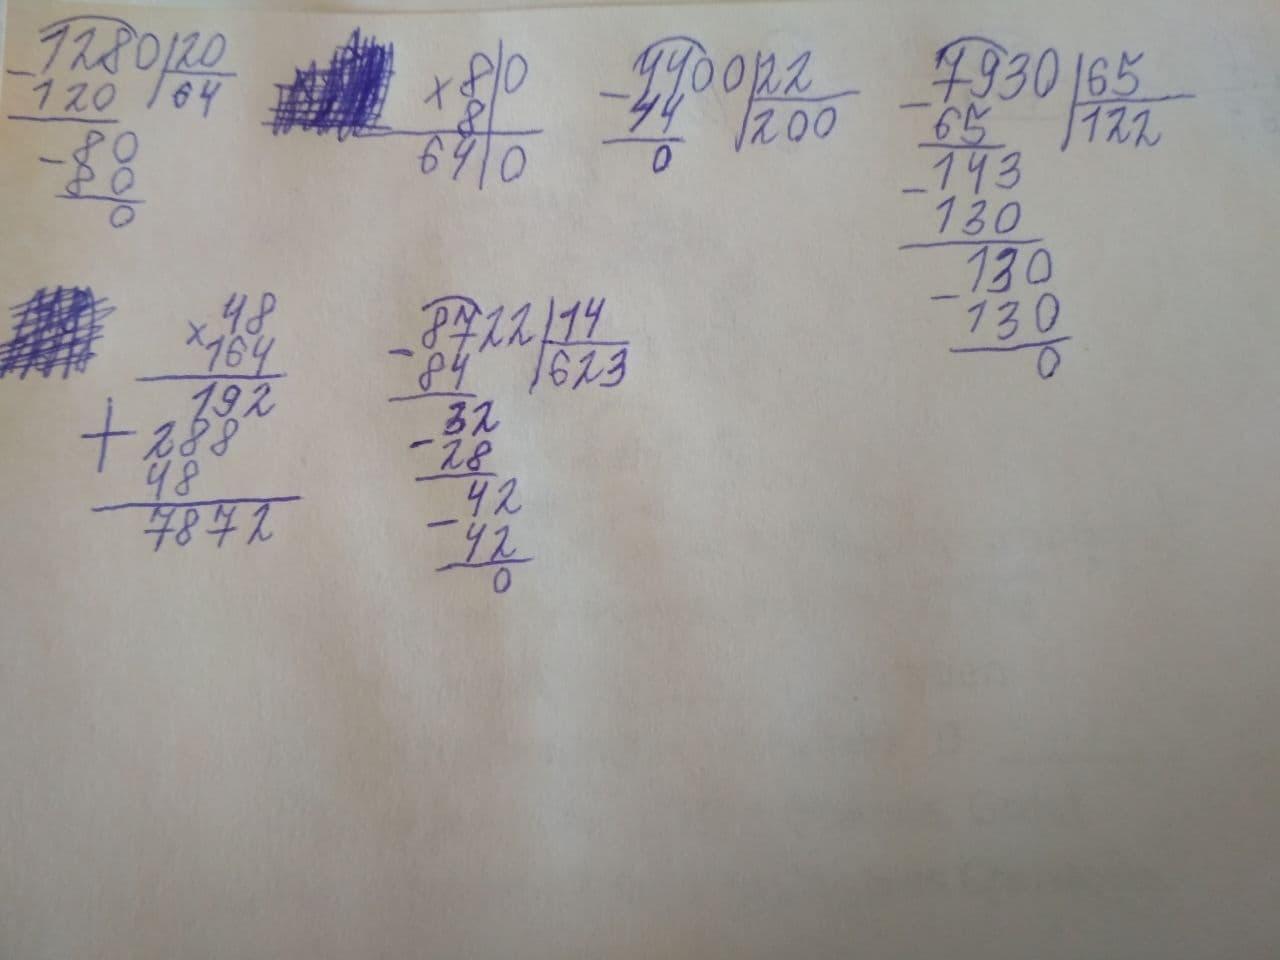 1280 20
- 120 64
- 80
80
0
80
× 8
640
4400 22
- 44 200
0
7930 65
- 65 122
- 143
130
- 130
130
0
48
× 164
192
+ 288
48
7872
8722 14
- 84 623
- 32
28
- 42
42
0